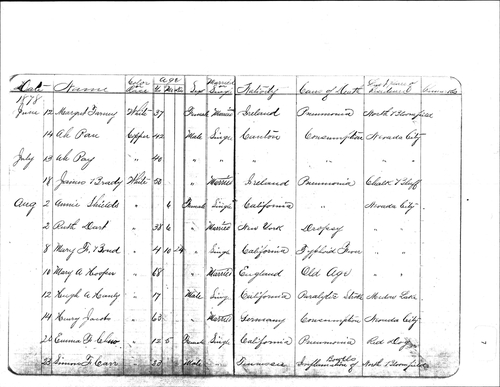 Date Name Color Race Age Yr Sex Married Single Nativity Cause of Death
1878
June 12 Margret White 37 Female Married Ireland Pneumonia North Bloomfield
14 Ah Copper 42 Male Single Canton Consumption Nevada City
July 13 Ah Pay " 40 " " " " "
18 James Brady White 50 " Married Ireland Pneumonia Chalk Bluff
Aug 2 Annie Shields " 6 Female Single California " Nevada City
2 Ruth Dart " 38 6 " Married New York Dropsy " "
8 Mary F. Bond " 4 10 14 " Single California Typhoid Fever " "
10 Mary A Hooper " 68 " Married England Old Age " "
12 Hugh A " 17 Male Sing California Paralytic Stroke Lake
14 Henry Jacobs " 63 " Married Germany Consumption Nevada City
21 Emma F. " 12 5 Female Single California Pneumonia Dog
23 Simon F Carr " 50 Male " Tennessee Inflammation of Bowels North Bloomfield